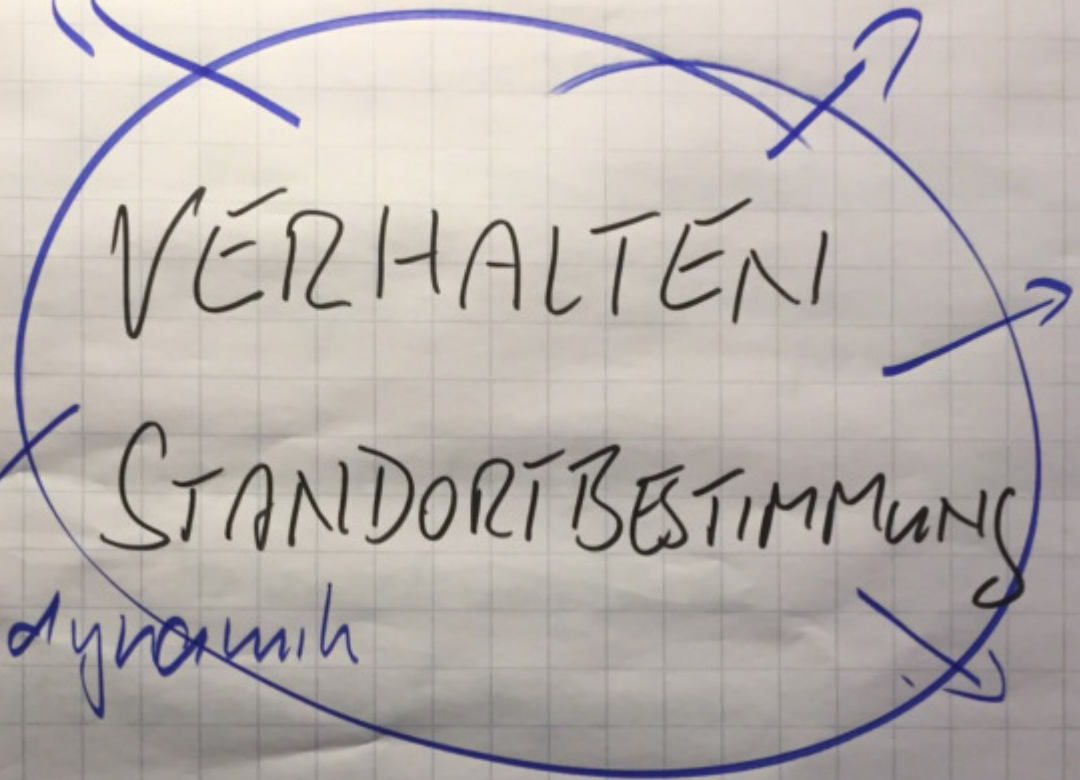 VERHALTEN
STANDORTBESTIMMUNG
dynamik